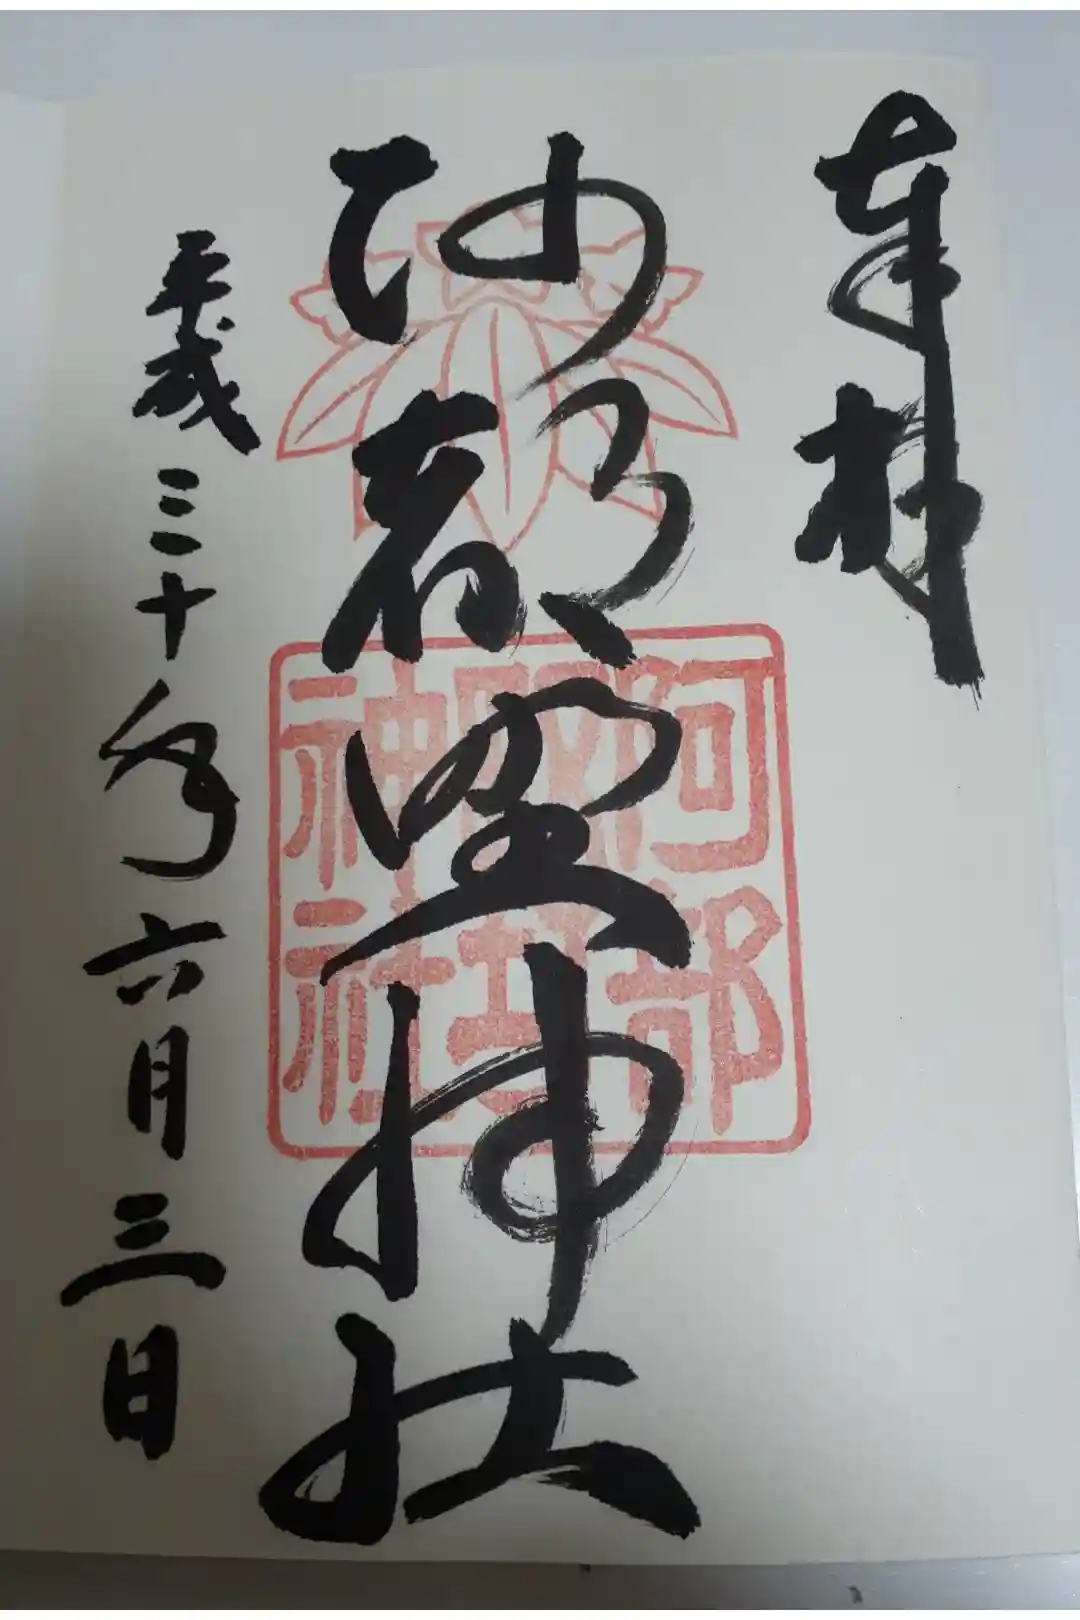 奉拝
阿部野神社
阿部野神社
平成三十年六月三日